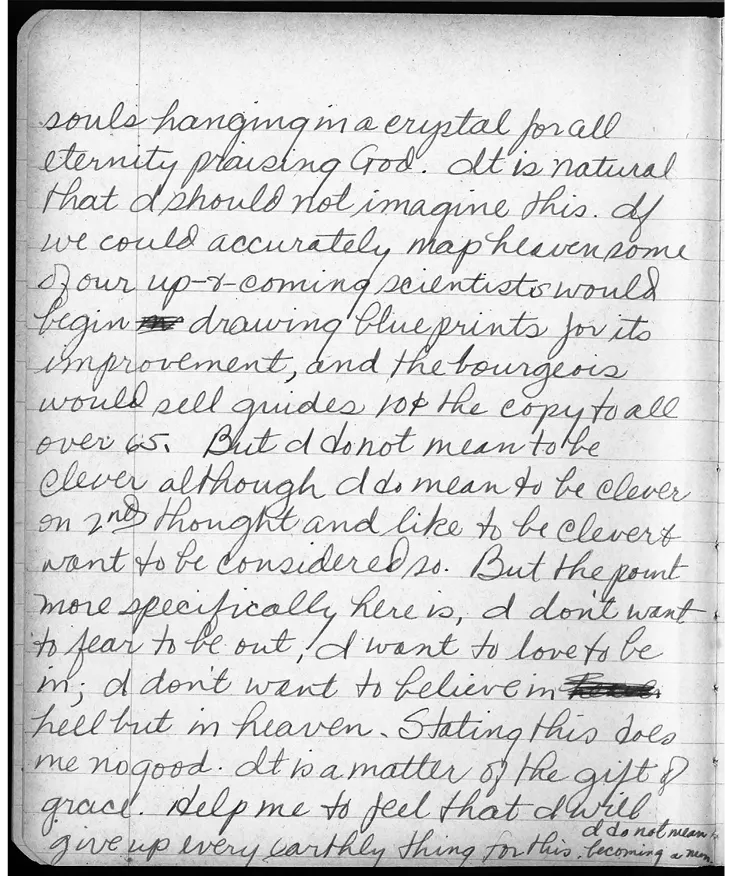 souls hanging in a crystal for all
eternity praising God. It is natural
that I should not imagine this. If
we could accurately map heaven some
of our up-&-coming scientists would
begin drawing blueprints for its
improvement, and the bourgeois
would sell guides 10¢ the copy to all
over 65. But I do not mean to be
clever although I do mean to be clever
on 2nd thought and like to be clever &
want to be considered so. But the point
more specifically here is, I don't want
to fear to be out, I want to love to be
in; I don't want to believe in
hell but in heaven. Stating this does
me no good. It is a matter of the gift of
grace. Help me to feel that I will
give up every earthly thing for this.
I do not mean
becoming a nun.